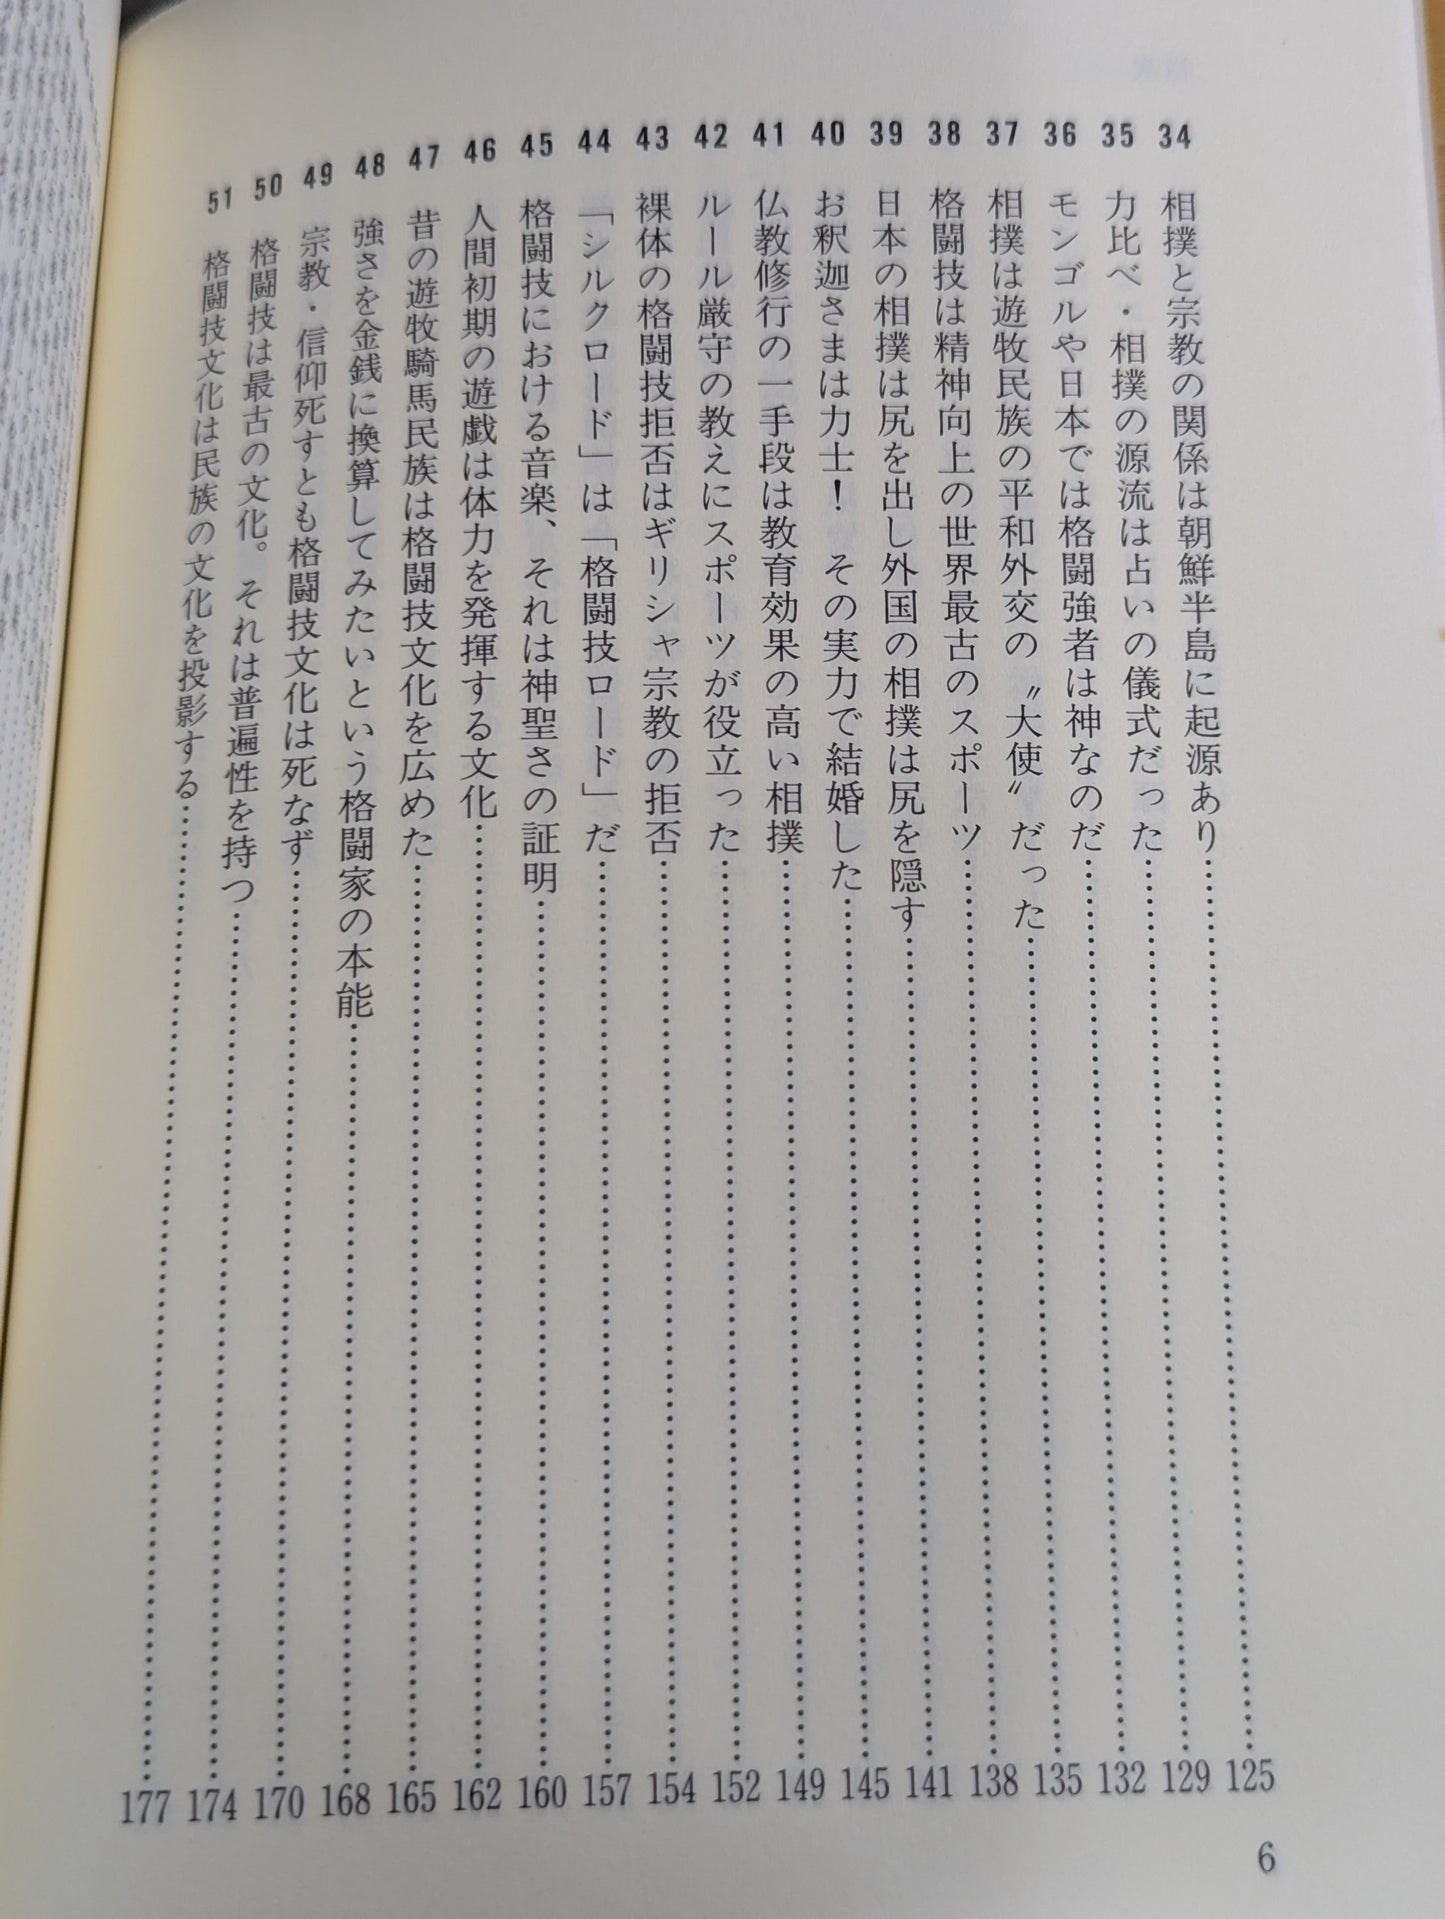 34 相撲と宗教の関係は朝鮮半島に起源あり 125
35 力比べ・相撲の源流は占いの儀式だった 129
36 モンゴルや日本では格闘強者は神なのだ 132
37 相撲は遊牧民族の平和外交の〝大使〟だった 135
38 格闘技は精神向上の世界最古のスポーツ 138
39 日本の相撲は尻を出し外国の相撲は尻を隠す 141
40 お釈迦さまは力士! その実力で結婚した 145
41 仏教修行の一手段は教育効果の高い相撲 149
42 ルール厳守の教えにスポーツが役立った 152
43 裸体の格闘技拒否はギリシャ宗教の拒否 154
44 「シルクロード」は「格闘技ロード」だ 157
45 格闘技における音楽、それは神聖さの証明 160
46 人間初期の遊戯は体力を発揮する文化 162
47 昔の遊牧騎馬民族は格闘技文化を広めた 165
48 強さを金銭に換算してみたいという格闘家の本能 168
49 宗教・信仰死すとも格闘技文化は死なず 170
50 格闘技は最古の文化。それは普遍性を持つ 174
51 格闘技文化は民族の文化を投影する 177
6